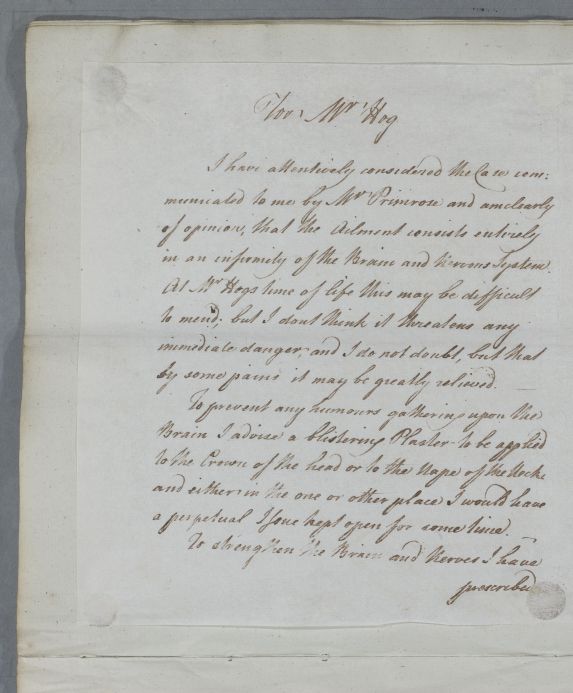 For Mr Hog
I have attentively considered the Case com:
municated to me by Mr Primrose and am clearly
of opinion, that the Ailment consists entirely
in an infirmity of the Brain and Nervous System.
At Mr Hogs time of life this may be difficult
to mend; but I dont think it threatens any
immediate danger; and I do not doubt, but that
by some pains it may be greatly relieved.
To prevent any humours gathering upon the
Brain I advise a blistering Plaster to be applied
to the Crown of the head or to the Nape of the Neck
and either in the one or other place I would have
a perpetual Issue kept open for some time.
To strengthen the Brain and Nerves I have
prescribed